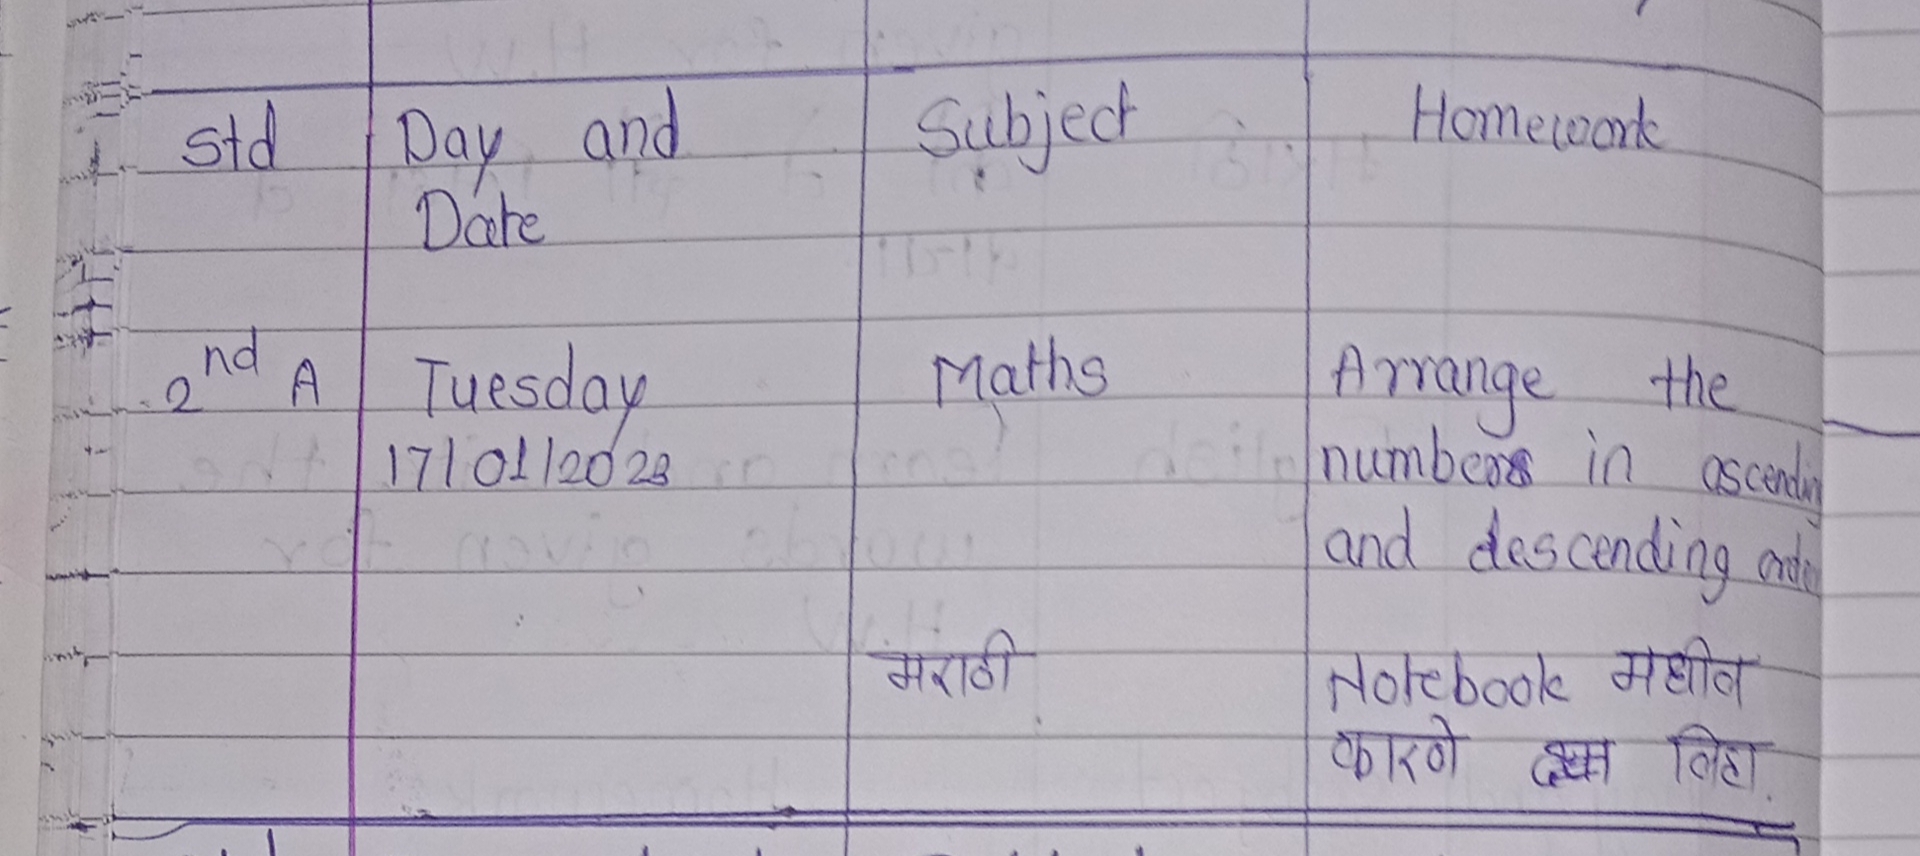 Std Day and Subject Homework
Date
2nd A Tuesday Maths Arrange the
17/01/2023 numbers in ascending
and descending order
मराठी Notebook मधील
कारणे लिहा.